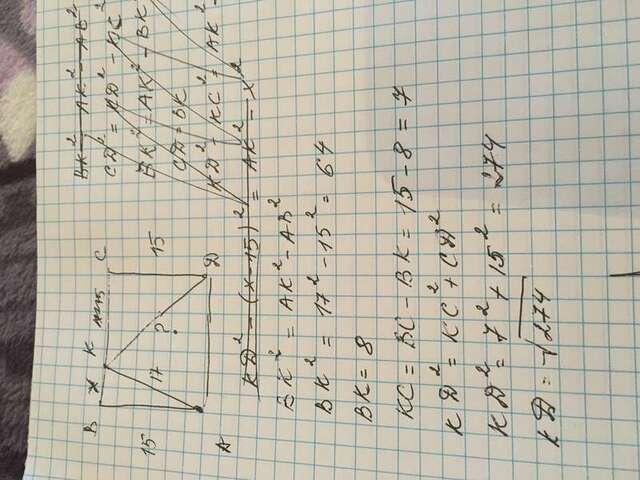 B x K C
15 17 ? 15
A D
BK² AK² - AB²
CD² = KD² - KC²
BK² = AK² - BK
CD = BK
KD² - KC² = AK² -
KD² - (x-15)² = AK² - x²
BK² = AK² - AB²
BK² = 17² - 15² = 64
BK = 8
KC = BC - BK = 15 - 8 = 7
KD² = KC² + CD²
KD² = 7² + 15² = 274
KD = √274